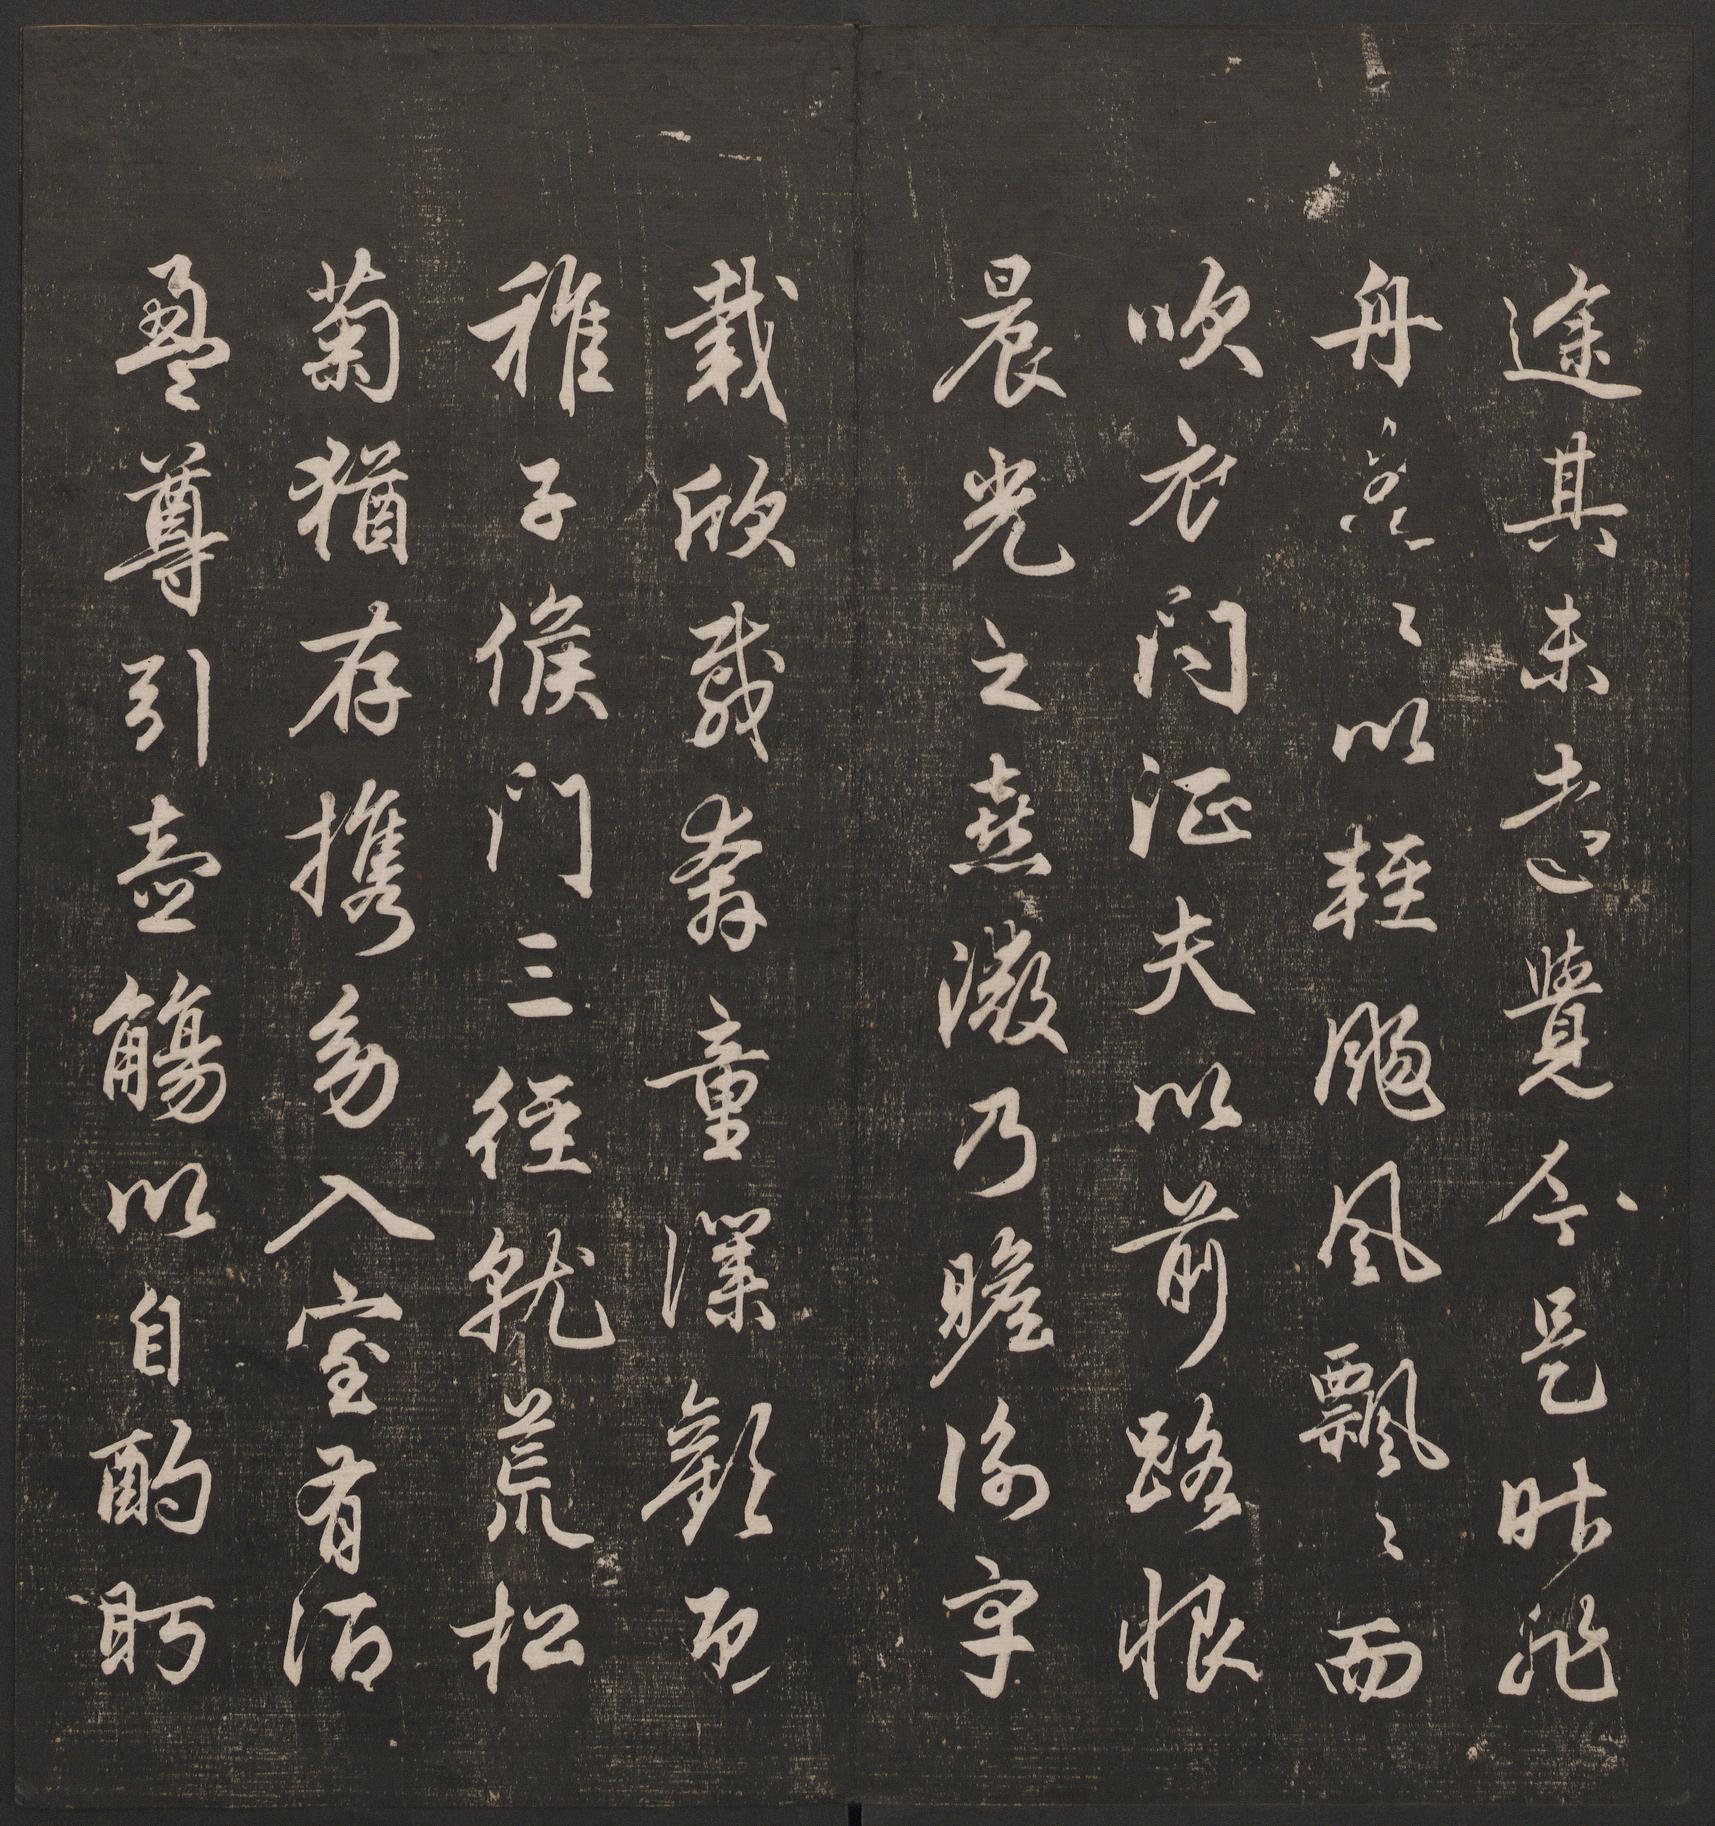 途其未遠覺今是昨非
舟遙〻以輕颺風飄〻而
吹衣問征夫以前路恨
晨光之熹微乃瞻衡宇
載欣載奔童僕歡迎
稚子候門三徑就荒松
菊猶存携幼入室有酒
盈尊引壺觴以自酌眄